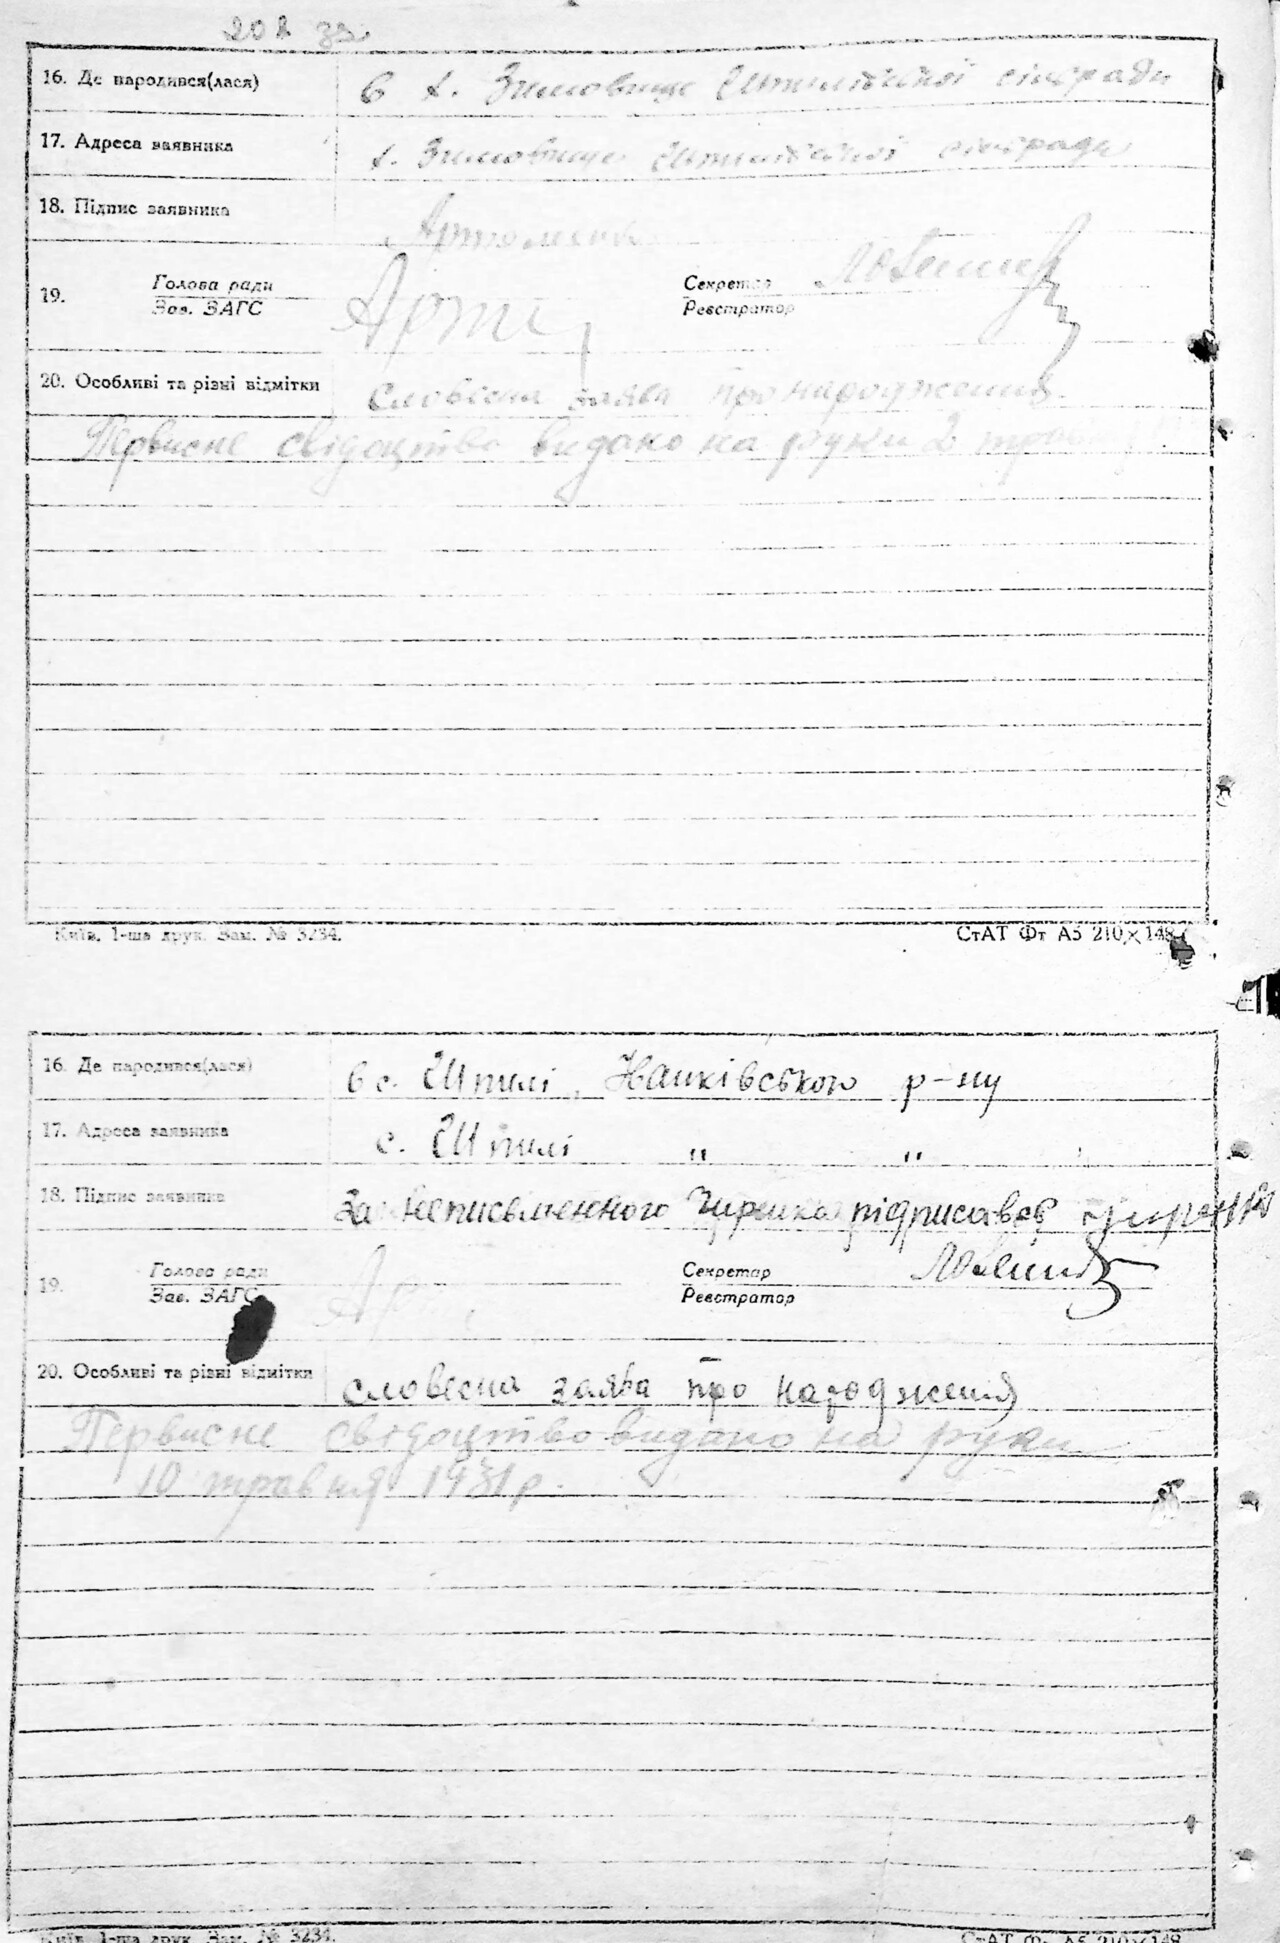 16. Де народився(лася) в х. Зимовище Шпилівської сільради
17. Адреса заявника х. Зимовище Шпилівської сільради
18. Підпис заявника
19. Голова ради Секретар
Зав. ЗАГС Реєстратор
20. Особливі та різні відмітки словесна заява про народження
Первисне свідоцтво видано на руки 2
Київ, 1-ша друк. Зам. № 3234. СтАТ Фт А5 210×148
16. Де народився(лася) в с. Шпилі, р-ну
17. Адреса заявника с. Шпилі " "
18. Підпис заявника За неписьменного підписався
19. Голова ради Секретар
Зав. ЗАГС Реєстратор
20. Особливі та різні відмітки словесна заява про народження
Первисне свідоцтво видано на руки
10 травня 1931 р.
Київ, 1-ша друк. Зам. № 3234. СтАТ Фт А5 210×148